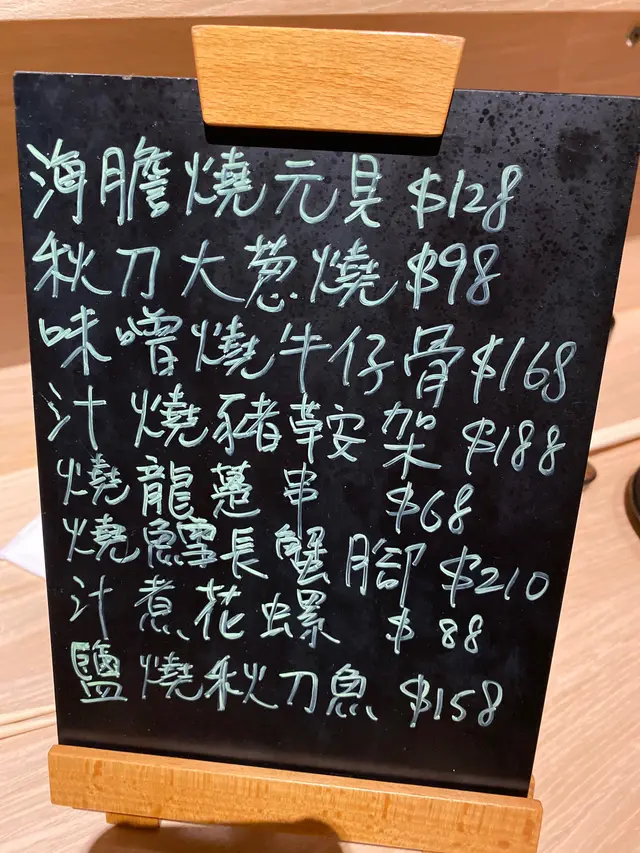 海膽燒元貝 $128
秋刀大葱燒 $98
味噌燒牛仔骨 $168
汁燒豬鞍架 $188
燒龍躉串 $68
燒鱈長蟹腳 $210
汁煮花螺 $88
鹽燒秋刀魚 $158